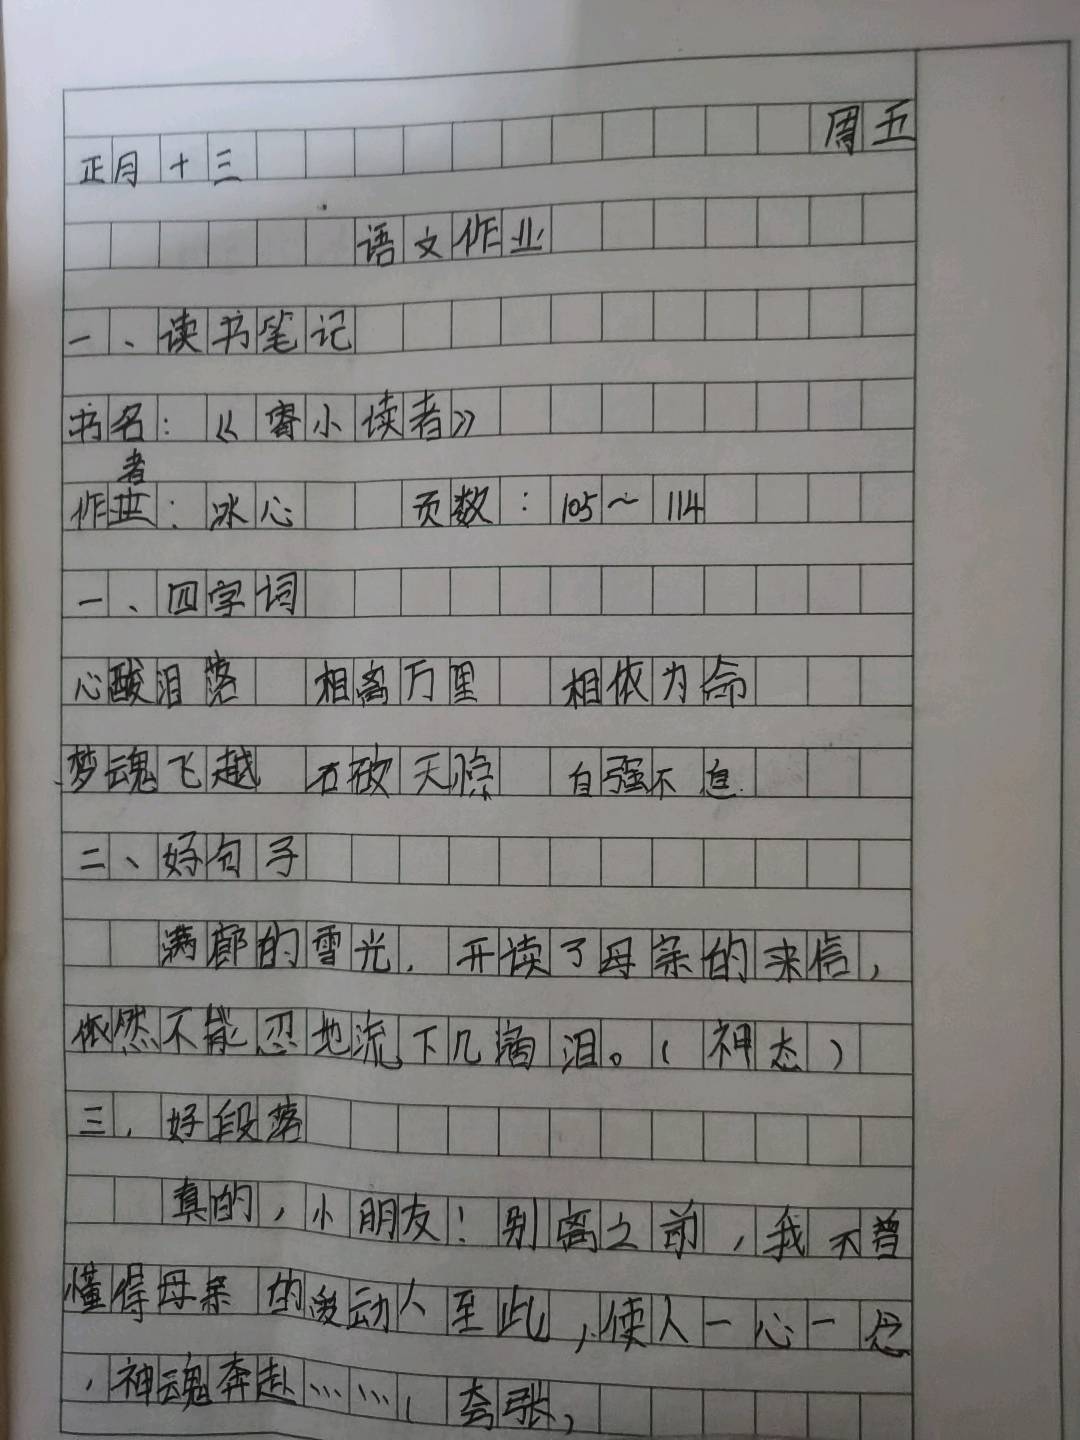 正月十三 周五
语文作业
一、读书笔记
书名：《寄小读者》
作者：冰心 页数：105~114
一、四字词
心酸泪落 相离万里 相依为命
梦魂飞越 石破天惊 自强不息
二、好句子
满廊的雪光，开读了母亲的来信，
依然不能忍地流下几滴泪。（神态）
三，好段落
真的，小朋友！别离之前，我不曾
懂得母亲的爱动人至此，使人一心一念
，神魂奔赴……（夸张，